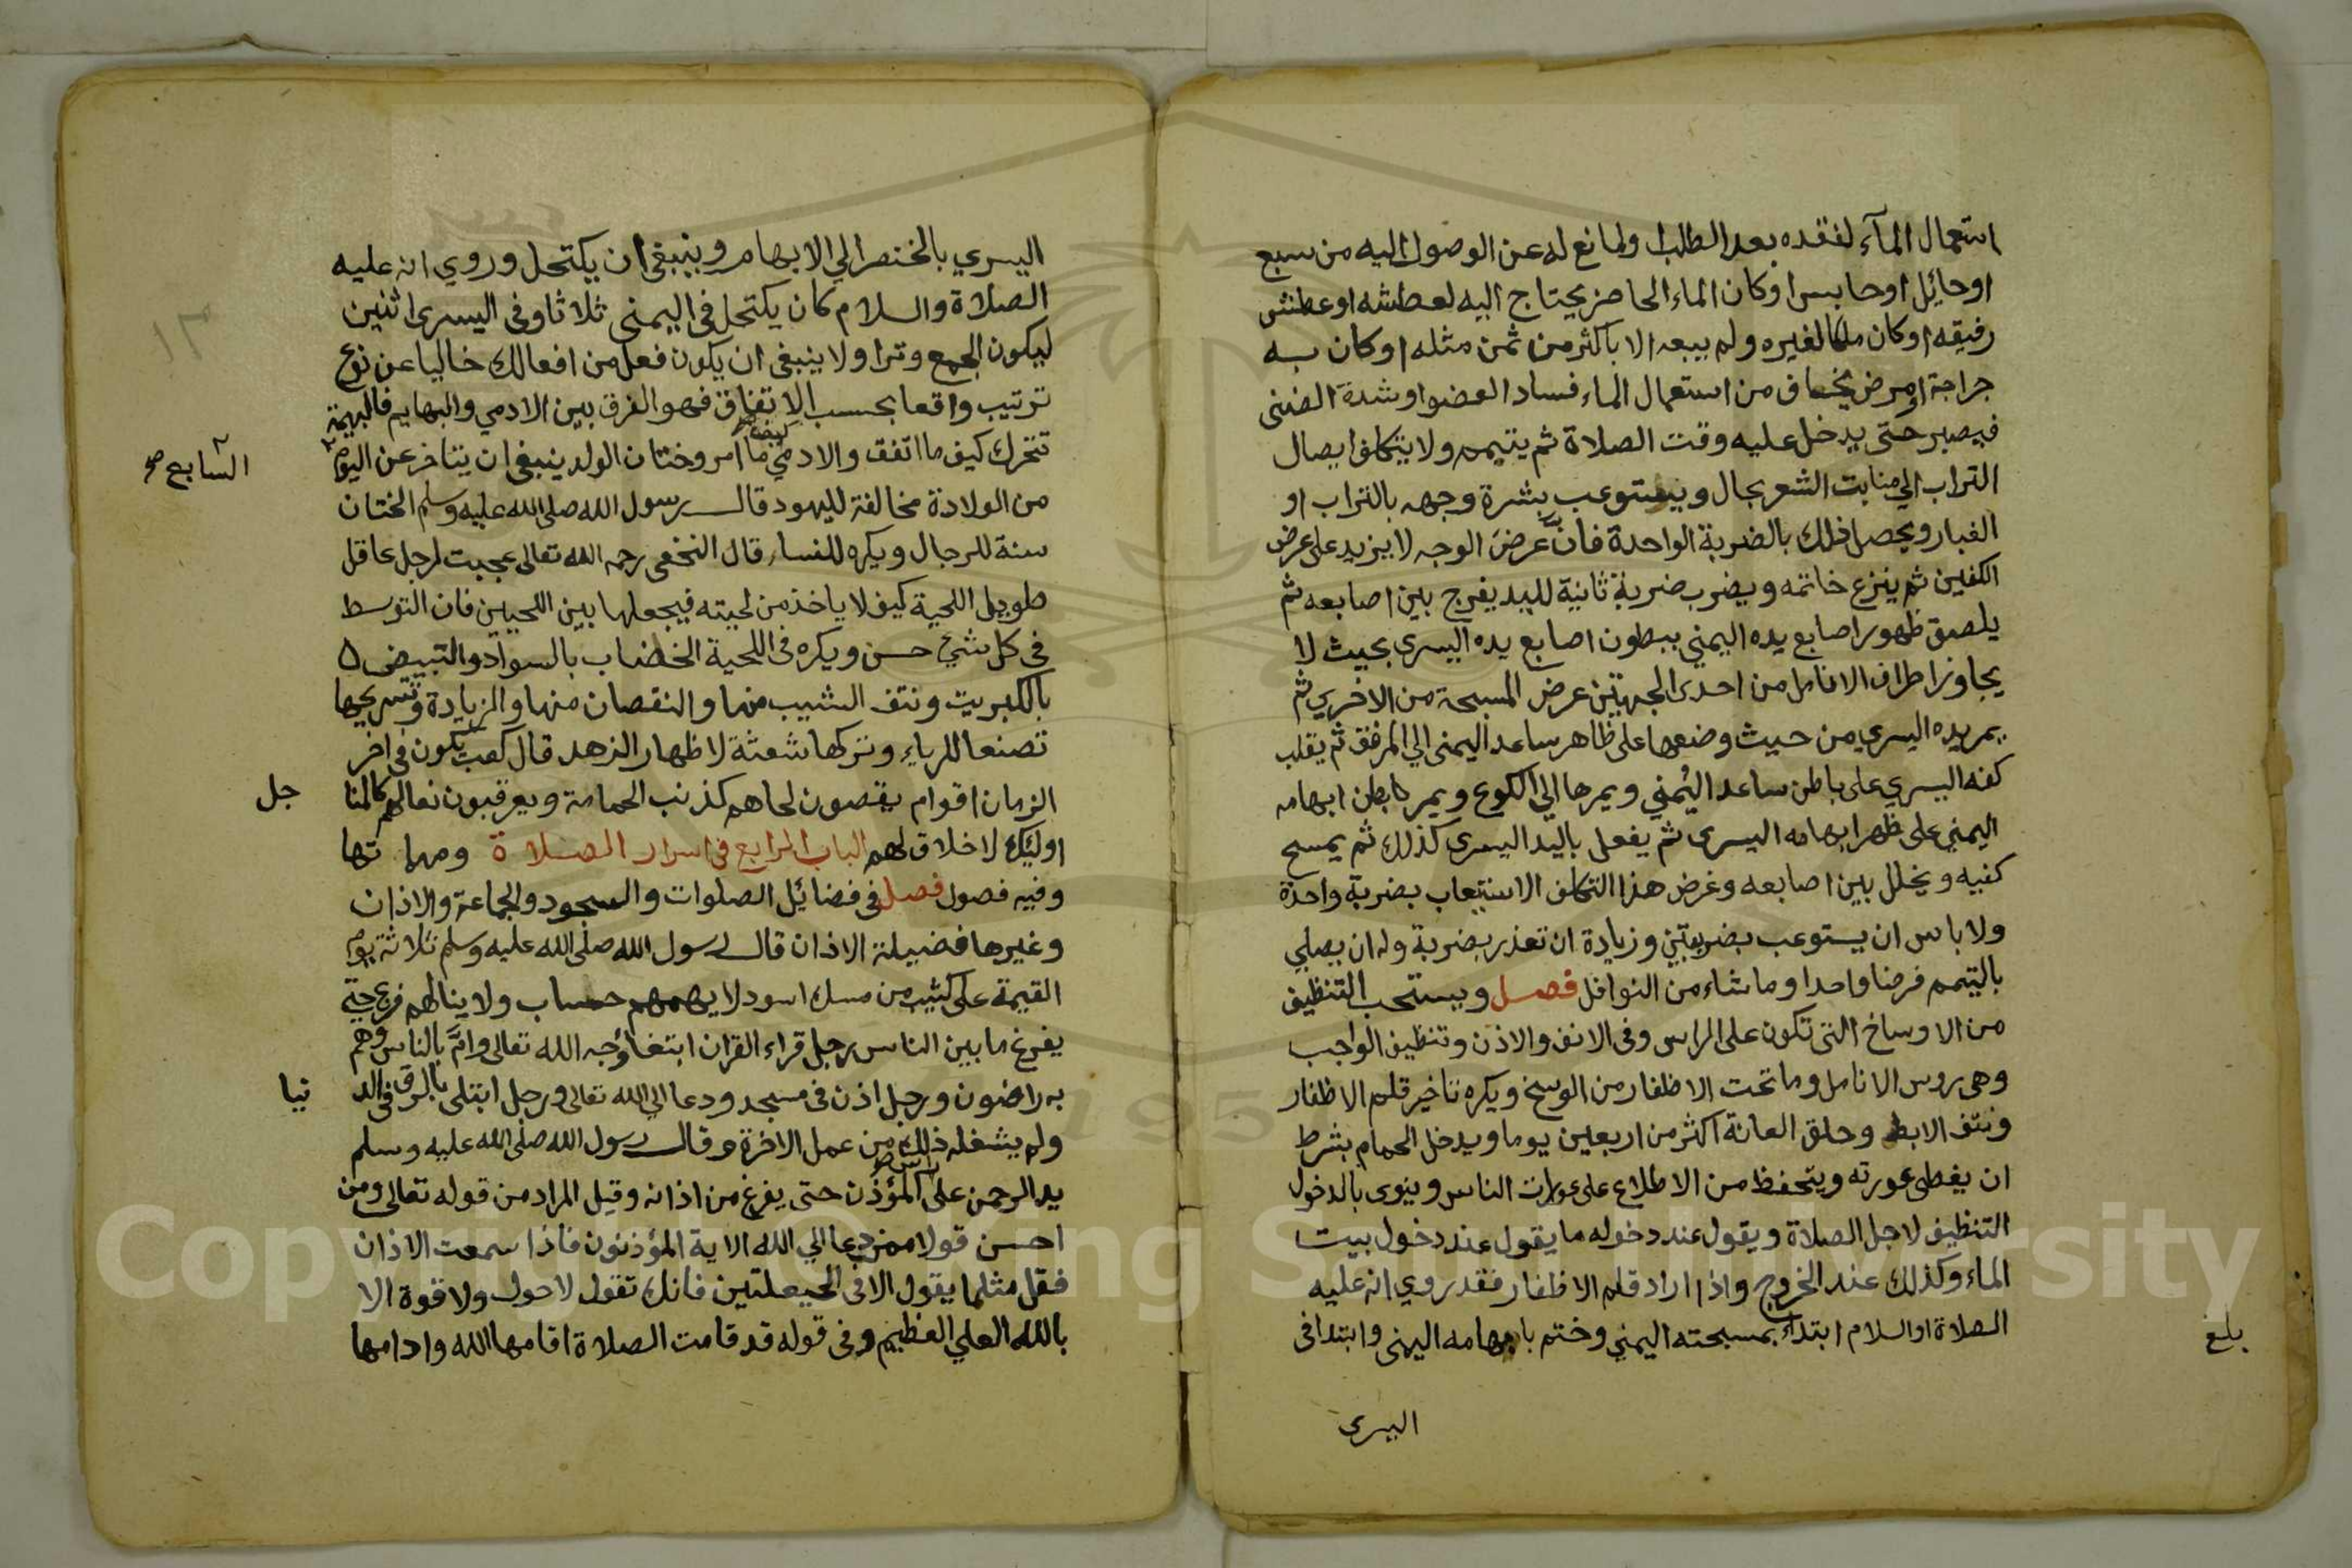 استعمال المآء لفقده بعد الطلب ولمانع له عن الوصول اليه من سبع
اوحائل اوحابس اوكان الماء الحاضر يحتاج اليه لعطشه اوعطش
رفيقه اوكان ملكا لغيره ولم يبعه الا باكثر من ثمن مثله اوكان به
جراحة اومرض يخاف من استعمال الماء فساد العضو اوشدة الضنى
فيصبر حتى يدخل عليه وقت الصلاة ثم يتيمم ولا يتكلف ايصال
التراب الي منابت الشعر بحال ويستوعب بشرة وجهه بالتراب او
الغبار ويحصل ذلك بالضربة الواحدة فان عرض الوجه لا يزيد على عرض
الكفين ثم ينزع خاتمه ويضرب ضربة ثانية لليد يفرج بين اصابعه ثم
يلصق ظهور اصابع يده اليمني ببطون اصابع يده اليسرى بحيث لا
يجاوز اطراف الانامل من احدى الجهتين عرض المسبحة من الاخري ثم
يمر يده اليسري من حيث وضعها على ظاهر ساعد اليمنى الي المرفق ثم يقلب
كفه اليسري على باطن ساعد اليمني ويمرها الي الكوع ويمر باطن ابهامه
اليمني على ظهر ابهامه اليسرى ثم يفعل باليد اليسرى كذلك ثم يمسح
كفيه ويخلل بين اصابعه وغرض هذا التكلف الاستيعاب بضربة واحدة
ولا باس ان يستوعب بضربتين وزيادة ان تعذر بضربة وله ان يصلي
بالتيمم فرضا واحدا وما شاء من النوافل فصل ويستحب التنظيف
من الاوساخ التى تكون على الراس وفى الانف والاذن وتنظيف الواجب
وهى روس الانامل وما تحت الاظفار من الوسخ ويكره تاخير قلم الاظفار
ونتف الابط وحلق العانة اكثر من اربعين يوما ويدخل الحمام بشرط
ان يغطى عورته ويتحفظ من الاطلاع على عورات الناس وينوى بالدخول
التنظيف لاجل الصلاة ويقول عند دخوله ما يقول عند دخول بيت
الماء وكذلك عند الخروج واذا اراد قلم الاظفار فقد روي انه عليه
الصلاة اوالسلام ابتدأ بمسبحته اليمني وختم بابهامه اليمنى وابتدا فى
بلغ
اليسرى
اليسري بالخنصر الي الابهام وينبغى ان يكتحل وروي انه عليه
الصلاة والسلام كان يكتحل فى اليمنى ثلاثا وفى اليسرى اثنين
ليكون الجمع وترا ولا ينبغى ان يكون فعل من افعالك خاليا عن نوع
ترتيب واقعا بحسب الاتفاق فهو الفرق بين الادمي والبهايم فالبهيمة
تتحرك كيف ما اتفق والادمي كيف ما امر وختان الولد ينبغى ان يتاخر عن اليوم
السابع صح
من الولادة مخالفة لليهود قال رسول الله صلى الله عليه وسلم الختان
سنة للرجال ويكره للنساء قال النخعى رحمه الله تعالى عجبت لرجل عاقل
طويل اللحية كيف لا ياخذ من لحيته فيجعلها بين اللحيين فان التوسط
فى كل شيء حسن ويكره فى اللحية الخضاب بالسواد والتبييض
بالكبريت ونتف الشيب منها والنقصان منها والزيادة وتسريحها
تصنعا للرياء وتركها شعثة لاظهار الزهد قال كعب يكون فى اخر
الزمان اقوام يقصون لحاهم كذنب الحمامة ويعرقبون نعالهم كالمنا
جل
اوليك لا خلاق لهم الباب الرابع فى اسرار الصلاة ومهما تها
وفيه فصول فصل فى فضائل الصلوات والسجود والجماعة والاذان
وغيرها فضيلة الاذان قال رسول الله صلى الله عليه وسلم ثلاثة يوم
القيمة على كثيب من مسك اسود لا يهمهم حساب ولا ينالهم فزع حتي
يفرغ ما بين الناس رجل قراء القران ابتغاء وجه الله تعالى وامَّ بالناس وهم
به راضون ورجل اذن فى مسجد ودعا الي الله تعالى ورجل ابتلى بالرق فى الد
نيا
ولم يشغله ذلك من عمل الاخرة وقال رسول الله صلى الله عليه وسلم
يد الرحمن على المؤذن حتى يفرغ من اذانه وقيل المراد من قوله تعالى ومن
احسن قولا ممن دعا الي الله الاية المؤذنون فاذا سمعت الاذان
فقل مثلما يقول الا فى الحيعلتين فانك تقول لاحول ولا قوة الا
بالله العلي العظيم وفى قوله قد قامت الصلاة اقامها الله وادامها
١٣
Copyright © King Saud University
195